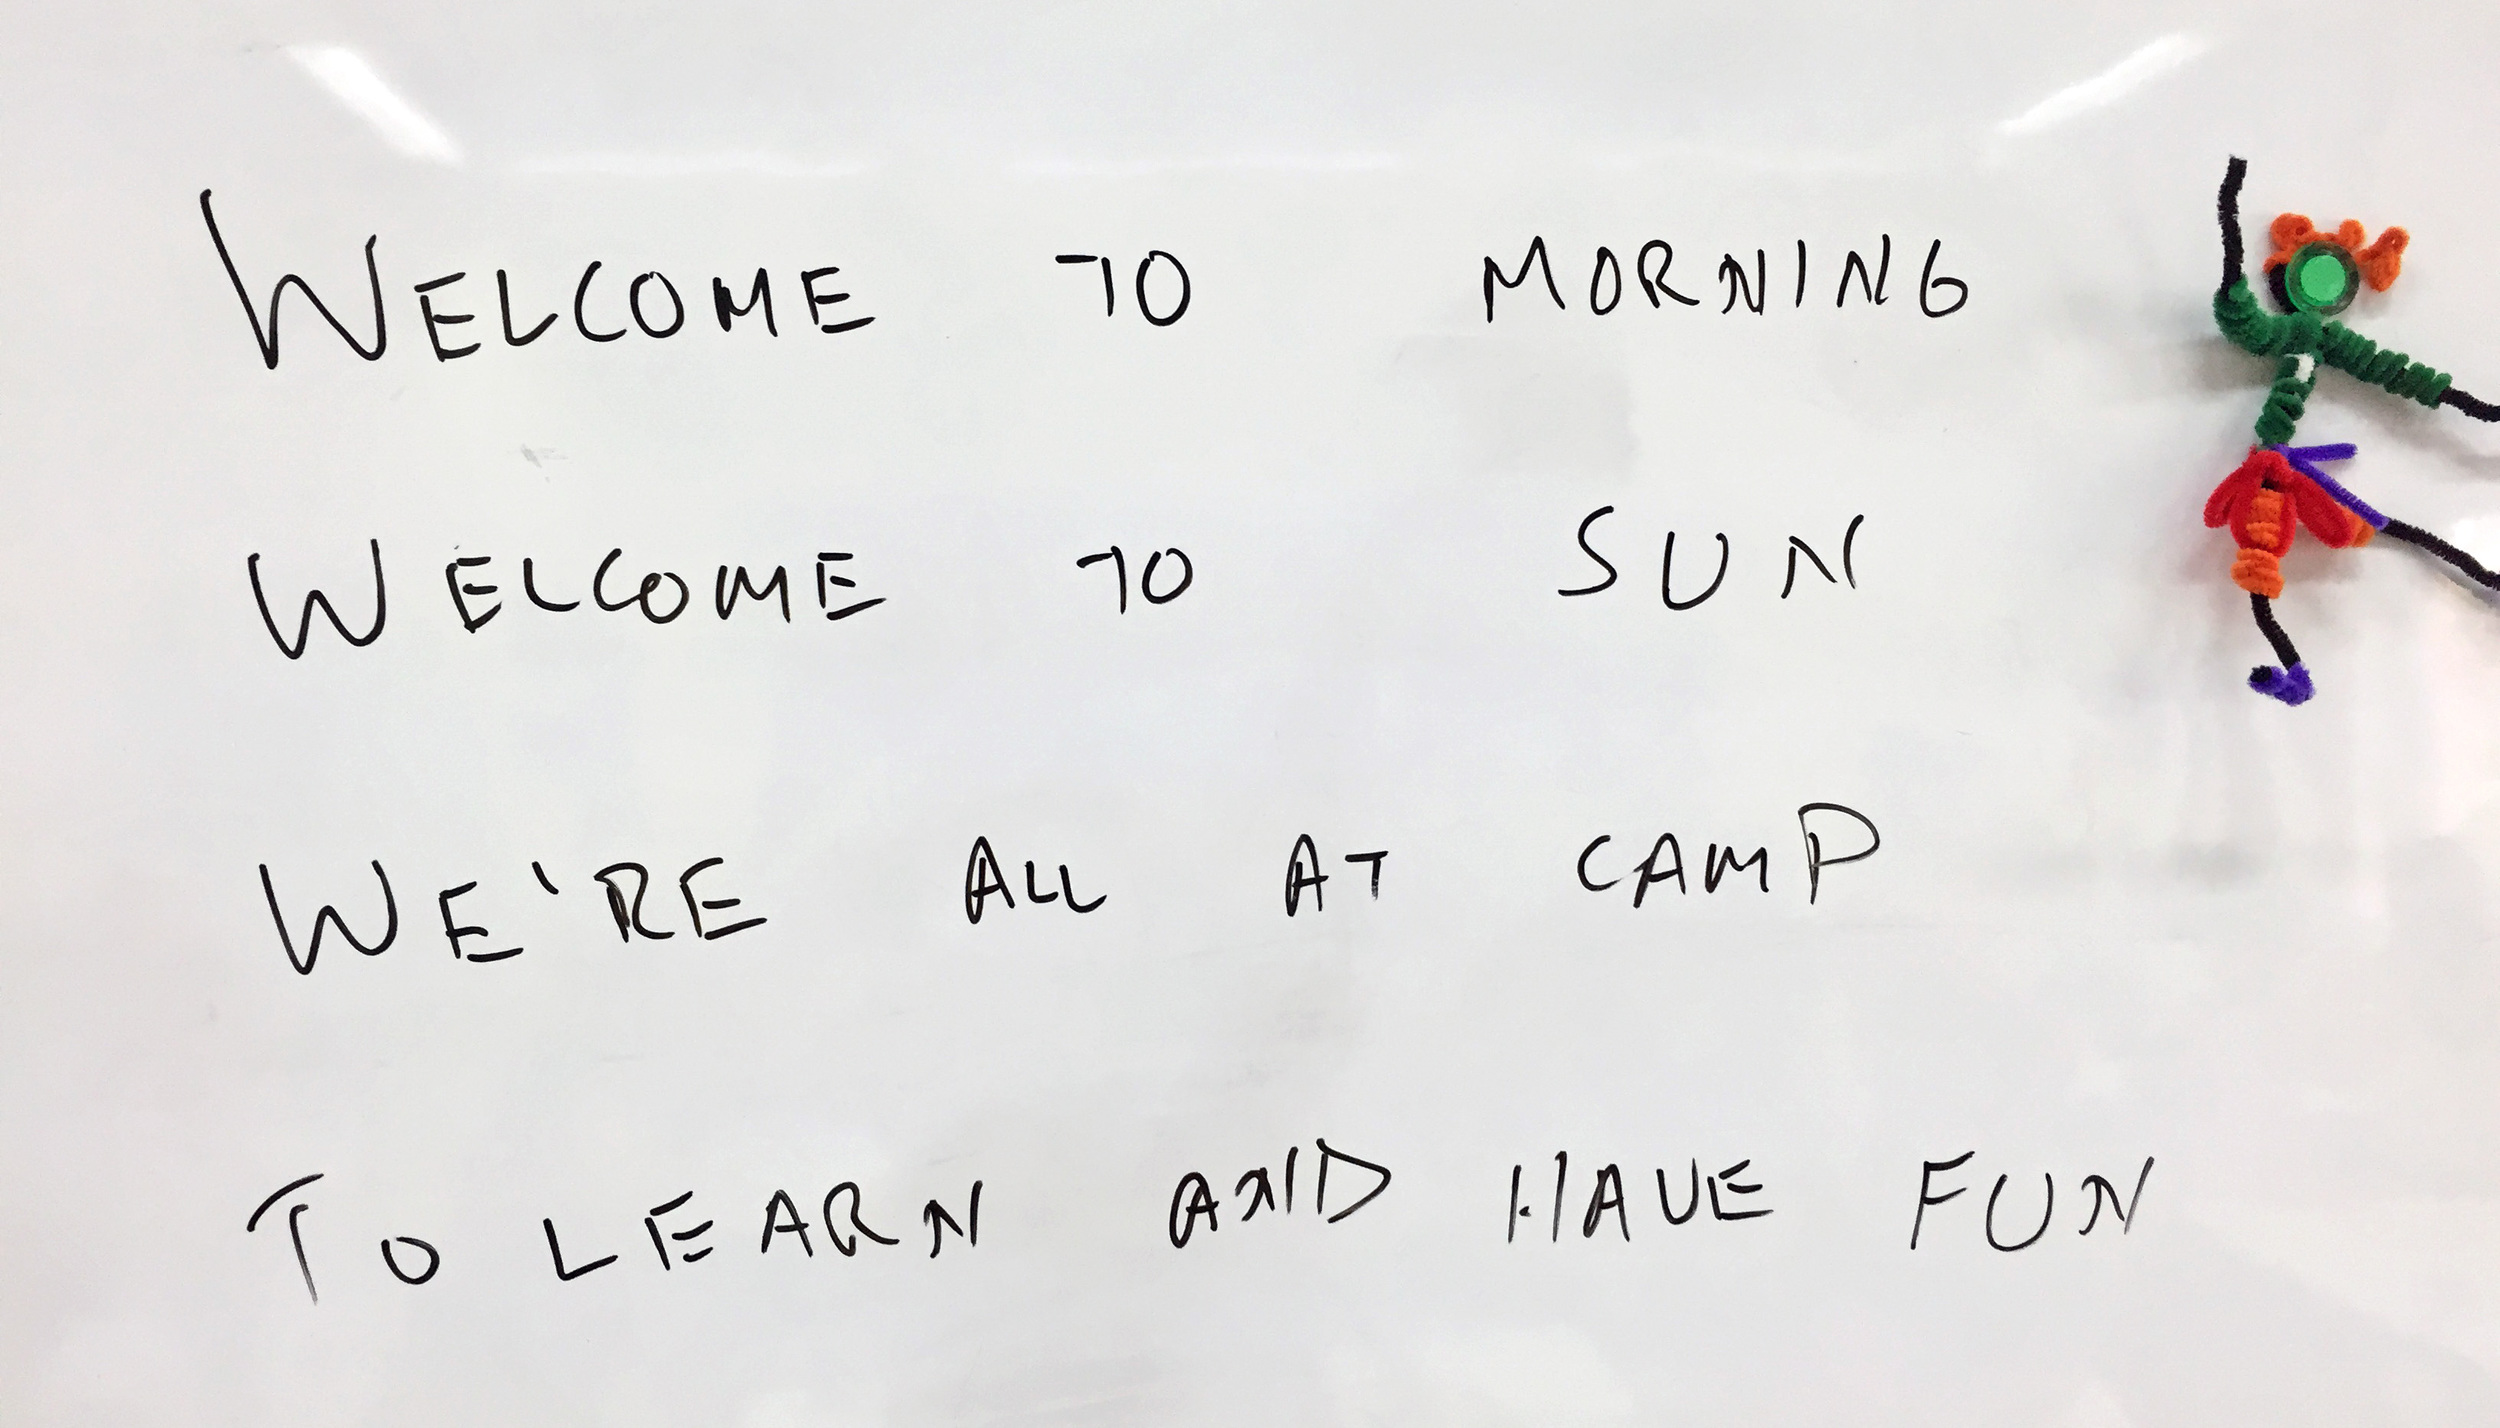 WELCOME TO MORNING
WELCOME TO SUN
WE'RE ALL AT CAMP
TO LEARN AND HAVE FUN